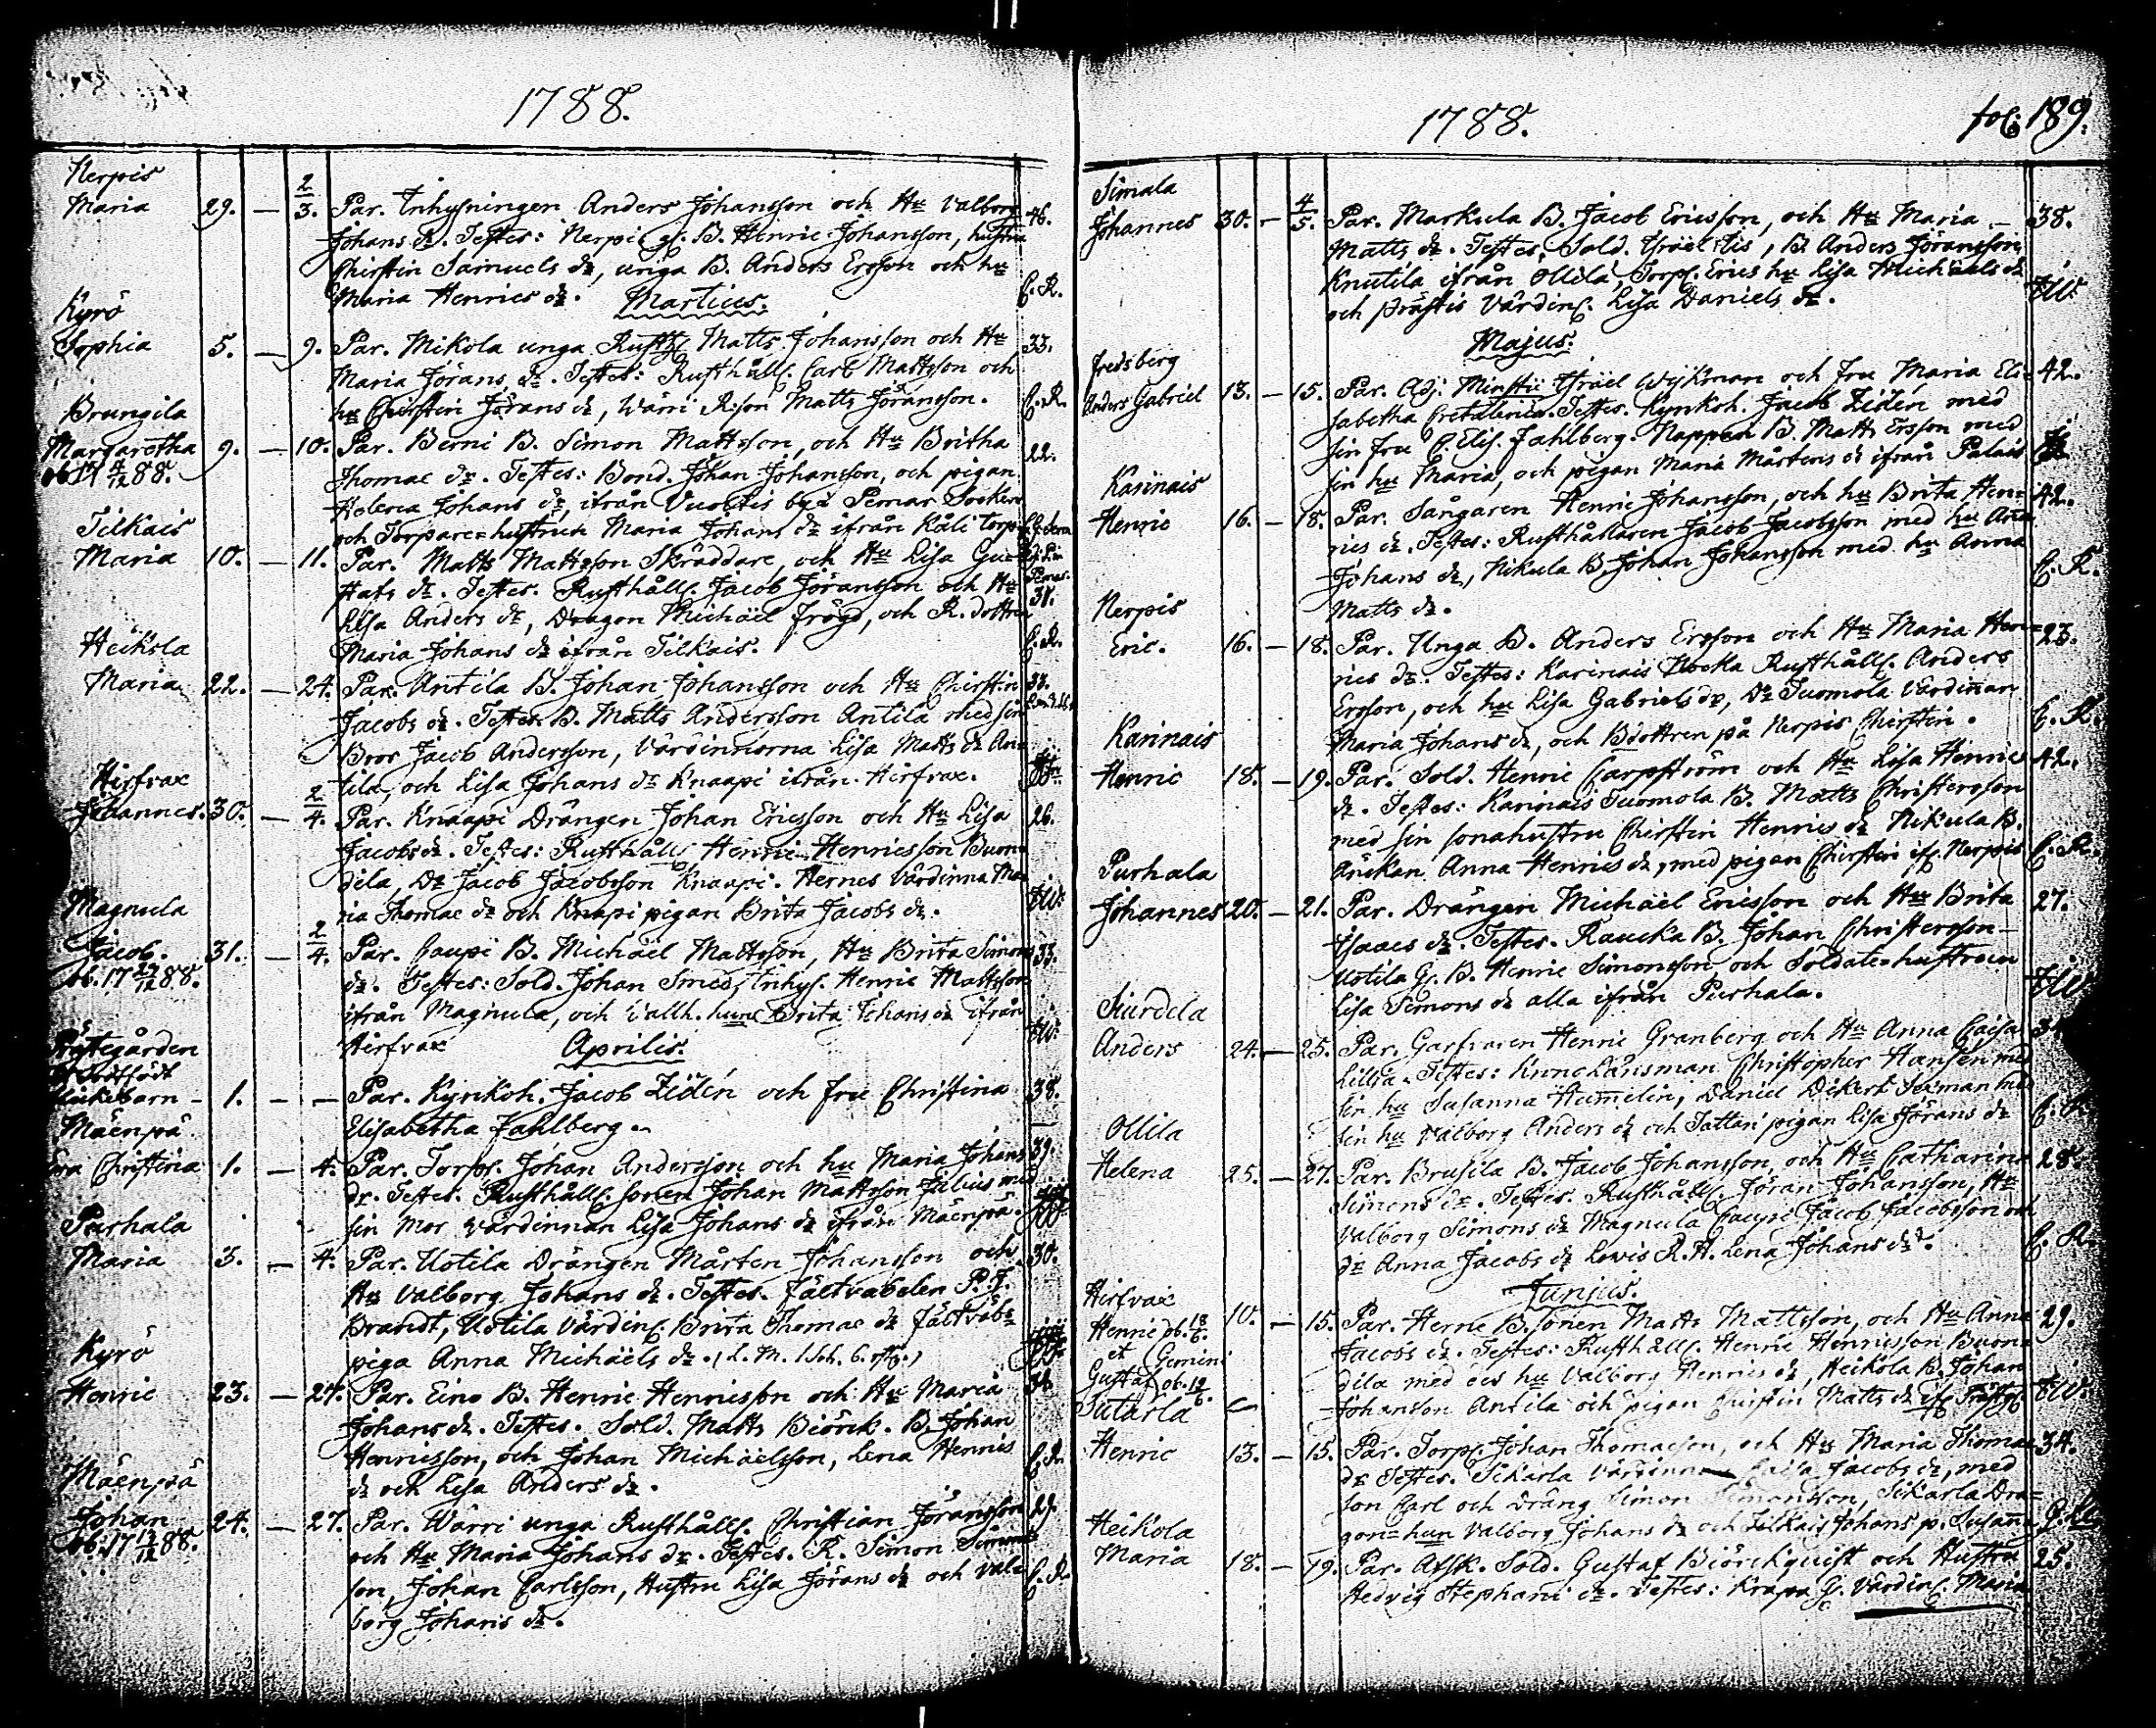 1788.
Nerpis
Maria 29. — 2/3. Par. Inhysningen Anders Johansson och Hu Valborg 46.
Johans dr. Testes: Nerpi g: B. Henric Johansson, hustru
Chirstin Samuels dr, unga B. Anders Ersson och hu
Maria Henrics dr. C. R.
Martius.
Kyrö
Sophia 5. — 9. Par. Mikola unga Rusth Matts Johansson och Hu 33.
Maria Jörans dr. Testes: Rusthåll. Carl Mattsson och
hu Chirstin Jörans dr, Wärri R:son Matts Jöransson. C. R.
Brungila
Margaretha 9. — 10. Par. Berni B. Simon Mattsson, och Hu Britha 22.
ob. 17 4/12 88. Thomae dr. Testes: Bond. Johan Johansson, och pigan
Helena Johans dr, ifrån Vuoltis by i Pemar Socken
och Torpare-hustrun Maria Johans dr ifrån Kåli torp
Tilkais
Maria 10. — 11. Par. Matts Mattsson Skräddare, och Hu Lisa Gu-
stafs dr. Testes. Rusthåll. Jacob Jöransson och Hu 31.
Lisa Anders dr, Dragon Michaël Frögd, och R. dottren
Maria Johans dr ifrån Tilkais. C. R.
Heikola
Maria 22. — 24. Par. Antila B. Johan Johansson och Hu Chirstin 33.
Jacobs dr. Testes. B. Matts Andersson Antila med sin
Bror Jacob Andersson, Värdinnorna Lisa Matts dr An-
tila, och Lisa Johans dr Knaapi ifrån Hirfvax.
Hirfvax
Johannes. 30. — 2/4. Par. Knaapi Drängen Johan Ericsson och Hu Lisa 26.
Jacobs dr. Testes: Rusthåll. Henric Henricsson Buon-
dila, Dr Jacob Jacobsson Knaapi. Hernes Värdinna Ma-
ria Thomae dr och Knapi pigan Brita Jacobs dr.
Magnula
Jacob. 31. — 2/4. Par. Caupi B. Michaël Mattsson, Hu Brita Simons 33.
ob. 17 27/12 88. dr. Testes: Sold. Johan Smed, Inhys. Henric Mattsson
ifrån Magnula, och Vallh. hun Brita Johans dr ifrån
Hirfvax
Aprilis.
Prästegården
dödfödt
flickebarn - 1. — — Par. Kyrkoh. Jacob Zidén och fru Christina 38.
Elisabetha Fahlberg.
Mäenpä
Christina 1. — 4. Par. Torp. Johan Andersson och hu Maria Johans 39.
dr. Testes. Rusthåll. sonen Johan Mattsson Julius med
sin Mor värdinnan Lisa Johans dr ifrån Mäenpä.
Purhala
Maria 3. — 4. Par. Uotila Drängen Mårten Johansson och 30.
Hu Valborg Johans dr. Testes. Fältväbelen P. J.
Brandt, Uotila värdin. Brita Thomae dr Fältväb:s
piga Anna Michaëls dr.
Kyrö
Henric 23. — 24. Par. Eino B. Henric Henricsson och Hu Maria
Johans dr. Testes. Sold. Matts Biörck. B. Johan
Henricsson, och Johan Michaëlsson, Lena Henrics
dr och Lisa Anders dr. C. R.
Mäenpä
Johan 24. — 27. Par. Wärri unga Rusthåll. Christian Jöransson 29.
ob. 17 13/12 88. och Hu Maria Johans dr. Testes. R. Simon Simons-
son, Johan Carlsson, Hustru Lisa Jörans dr och Val- C. R.
borg Johans dr.
1788. fol: 189.
Simala
Johannes 30. — 4/5. Par. Markula B. Jacob Ericsson, och Hu Maria — 38.
Matts dr. Testes, Sold. Israël Lis, B Anders Jöransson
Knutila ifrån Ollila, Torp. Erics hu Lisa Michaels dr
och prästis värdin. Lisa Daniels dr.
Majus.
Fredsberg
Anders Gabriel 13. — 15. Par. Adj: Minstri Israël Wijkman och fru Maria Eli- 42.
sabetha Cretalenia. Testes. Kyrkoh. Jacob Zidén med
sin fru C. Elis. Fahlberg. Nappen B. Matts Ersson med
sin hu Maria, och pigan Maria Mårtens dr ifrån Palais
Karinais
Henric 16. — 18. Par. Sångaren Henric Johansson, och hu Brita Hen- 42.
rics dr. Testes: Rusthållaren Jacob Jacobsson med hu Anna
Johans dr, Nikula B. Johan Johansson med hu Anna C. R.
Matts dr.
Nerpis
Eric. 16. — 18. Par. Unga B. Anders Ersson och Hu Maria Hen- 23.
rics dr. Testes: Karinais Nocka Rusthåll. Anders
Ersson, och hu Lisa Gabriels dr, Dr Tuomola Värdinnan
Maria Johans dr, och Bdottren på Nerpis Chirstin. C. R.
Karinais
Henric 18. — 19. Par. Sold. Henric Carpström och Hu Lisa Henrics 42.
dr. Testes: Karinais Tuomola B. Matts Christersson
med sin sonahustru Chirstin Henrics dr Nikula B.
änckan Anna Henrics dr, med pigan Chirstin if. Nerpis C. R.
Purhala
Johannes 20. — 21. Par. Drängen Michaël Ericsson och Hu Brita 27.
Isaacs dr. Testes. Raucka B. Johan Christersson
Uotila G. B. Henric Simonsson och Soldate-hustrun
Lisa Simons dr alla ifrån Purhala.
Siurdela
Anders 24. — 25. Par. Garfvaren Henric Granberg och Hu Anna Caisa
Lillja. Testes: Krono Länsman Christopher Hansén med
sin hu Susanna Humelin, Daniel Dikert Sexman med
sin hu Valborg Anders dr och Tattari pigan Lisa Jörans dr
Ollila
Helena 25. — 27. Par. Brusila B. Jacob Johansson, och Hu Catharina 28.
Simons dr. Testes. Rusthåll. Jöran Johansson, Hu
Valborg Simons dr Magnula Caupi Jacob Jacobsson och
dr Anna Jacobs dr Lewis R.H. Lena Johans dr. C. R.
Junius.
Hirfvax
Henric ob. 18/6. 10. — 15. Par. Herne B. sonen Matts Mattsson, och Hu Anna 29.
et Gemini Jacobs dr. Testes: Rusthåll. Henric Henricsson Buon-
Gustaf ob. 19/6. dila med des hu Valborg Henrics dr, Heikola B. Johan
Johansson Antila och pigan Chirstin Matts dr
Sutarla
Henric 13. — 15. Par. Torp. Johan Thomaeson, och Hu Maria Thomae 34.
dr Testes. Sikarla Värdinnan Caisa Jacobs dr, med
son Carl och dräng Simon Simonsson, Sikarla Dra-
gon-hun Valborg Johans dr och Tilkais Johans p. Susanna
Heikola
Maria 18. — 19. Par. Afsk. Sold. Gustaf Biörckquist och Hustru 25.
Hedvig Stephani dr. Testes: Krapa G. Värdin. Maria